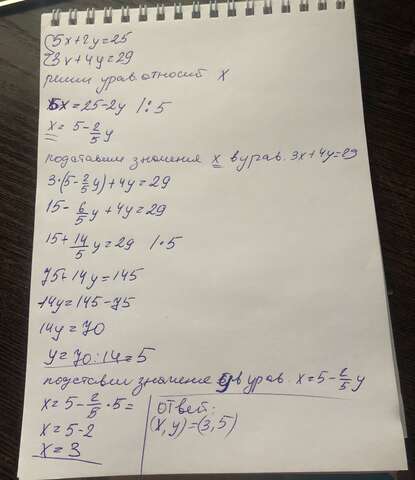 {5x+2y=25
{3x+4y=29
реши урав относит x
5x=25-2y /:5
x=5-2/5y
подставим значения x в урав. 3x+4y=29
3·(5-2/5y)+4y=29
15-6/5y+4y=29
15+14/5y=29 /·5
75+14y=145
14y=145-75
14y=70
y=70:14=5
подставим значение y в урав. x=5-2/5y
x=5-2/5·5=
x=5-2
x=3
ответ:
(x,y)=(3,5)